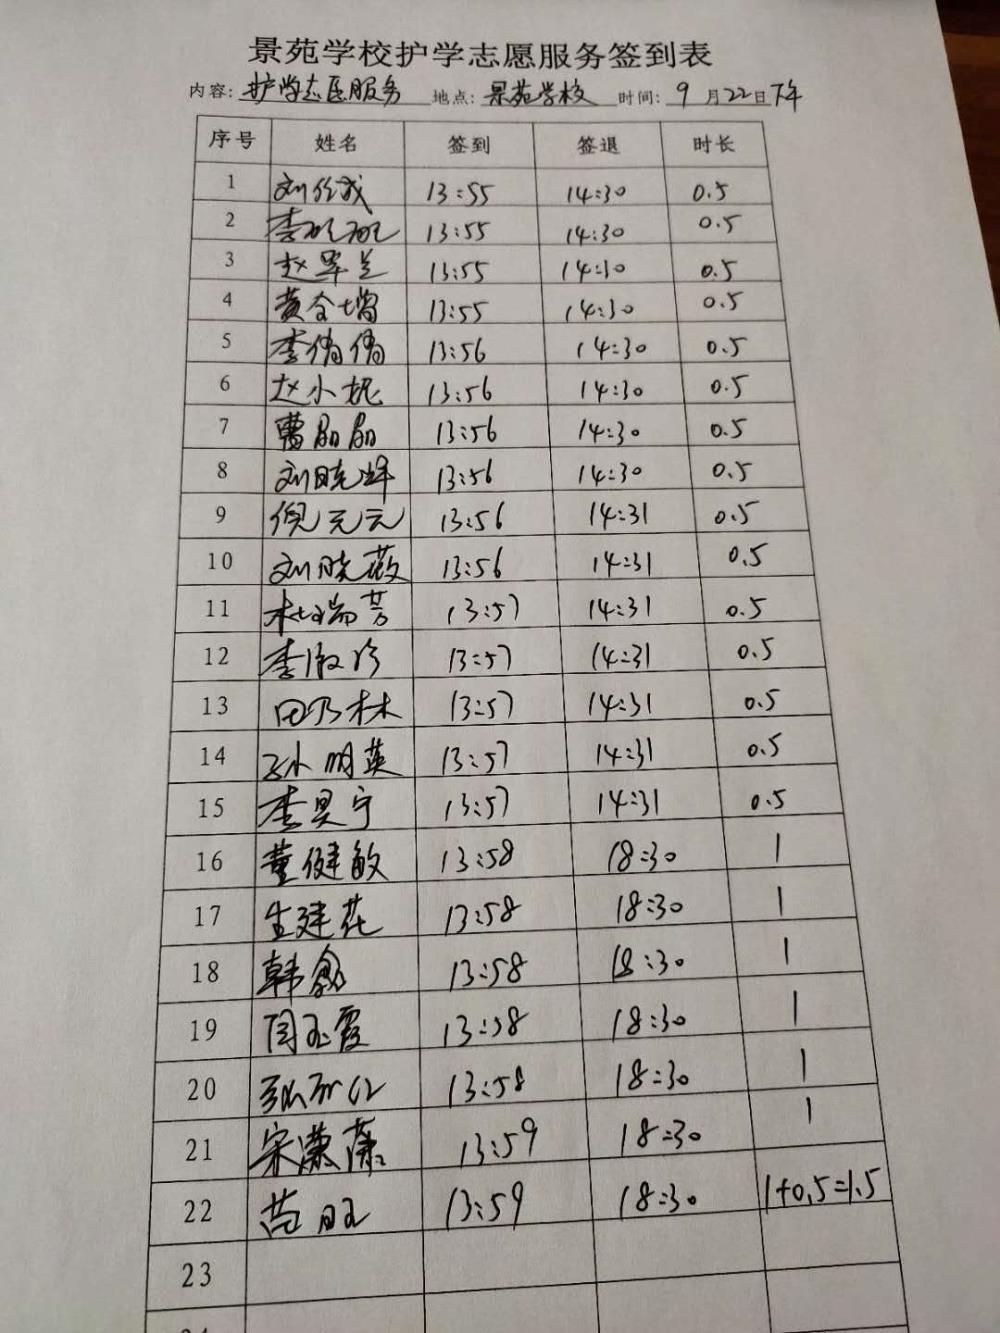 景苑学校护学志愿服务签到表
内容: 护学志愿服务 地点: 景苑学校 时间: 9 月22日下午
序号 姓名 签到 签退 时长
1 13:55 14:30 0.5
2 13:55 14:30 0.5
3 13:55 14:30 0.5
4 13:55 14:30 0.5
5 李倩倩 13:56 14:30 0.5
6 赵小妮 13:56 14:30 0.5
7 曹晶晶 13:56 14:30 0.5
8 刘晓峰 13:56 14:30 0.5
9 倪元云 13:56 14:31 0.5
10 刘晓薇 13:56 14:31 0.5
11 杜瑞芳 13:57 14:31 0.5
12 李淑珍 13:57 14:31 0.5
13 田乃林 13:57 14:31 0.5
14 孙明英 13:57 14:31 0.5
15 李昊宁 13:57 14:31 0.5
16 董健敏 13:58 18:30 1
17 生建花 13:58 18:30 1
18 韩 13:58 18:30 1
19 闫玉霞 13:58 18:30 1
20 13:58 18:30 1
21 宋潇潇 13:59 18:30 1
22 13:59 18:30 1+0.5=1.5
23